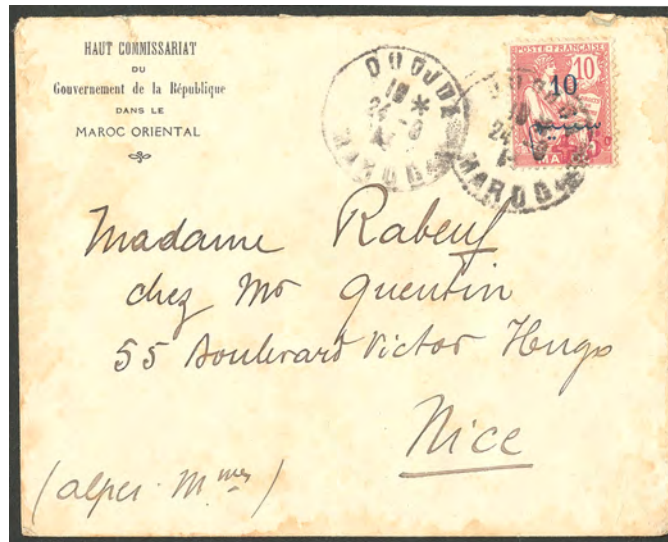 HAUT COMMISSARIAT
DU
Gouvernement de la République
DANS LE
MAROC ORIENTAL
OUDJDA
10 *
24 -8
MAROC
POSTE FRANÇAISE
10
10
MA
MAROC
Madame Rabeuf
chez Mr Quentin
55 Boulevard Victor Hugo
Nice
(alpes. Mmes)